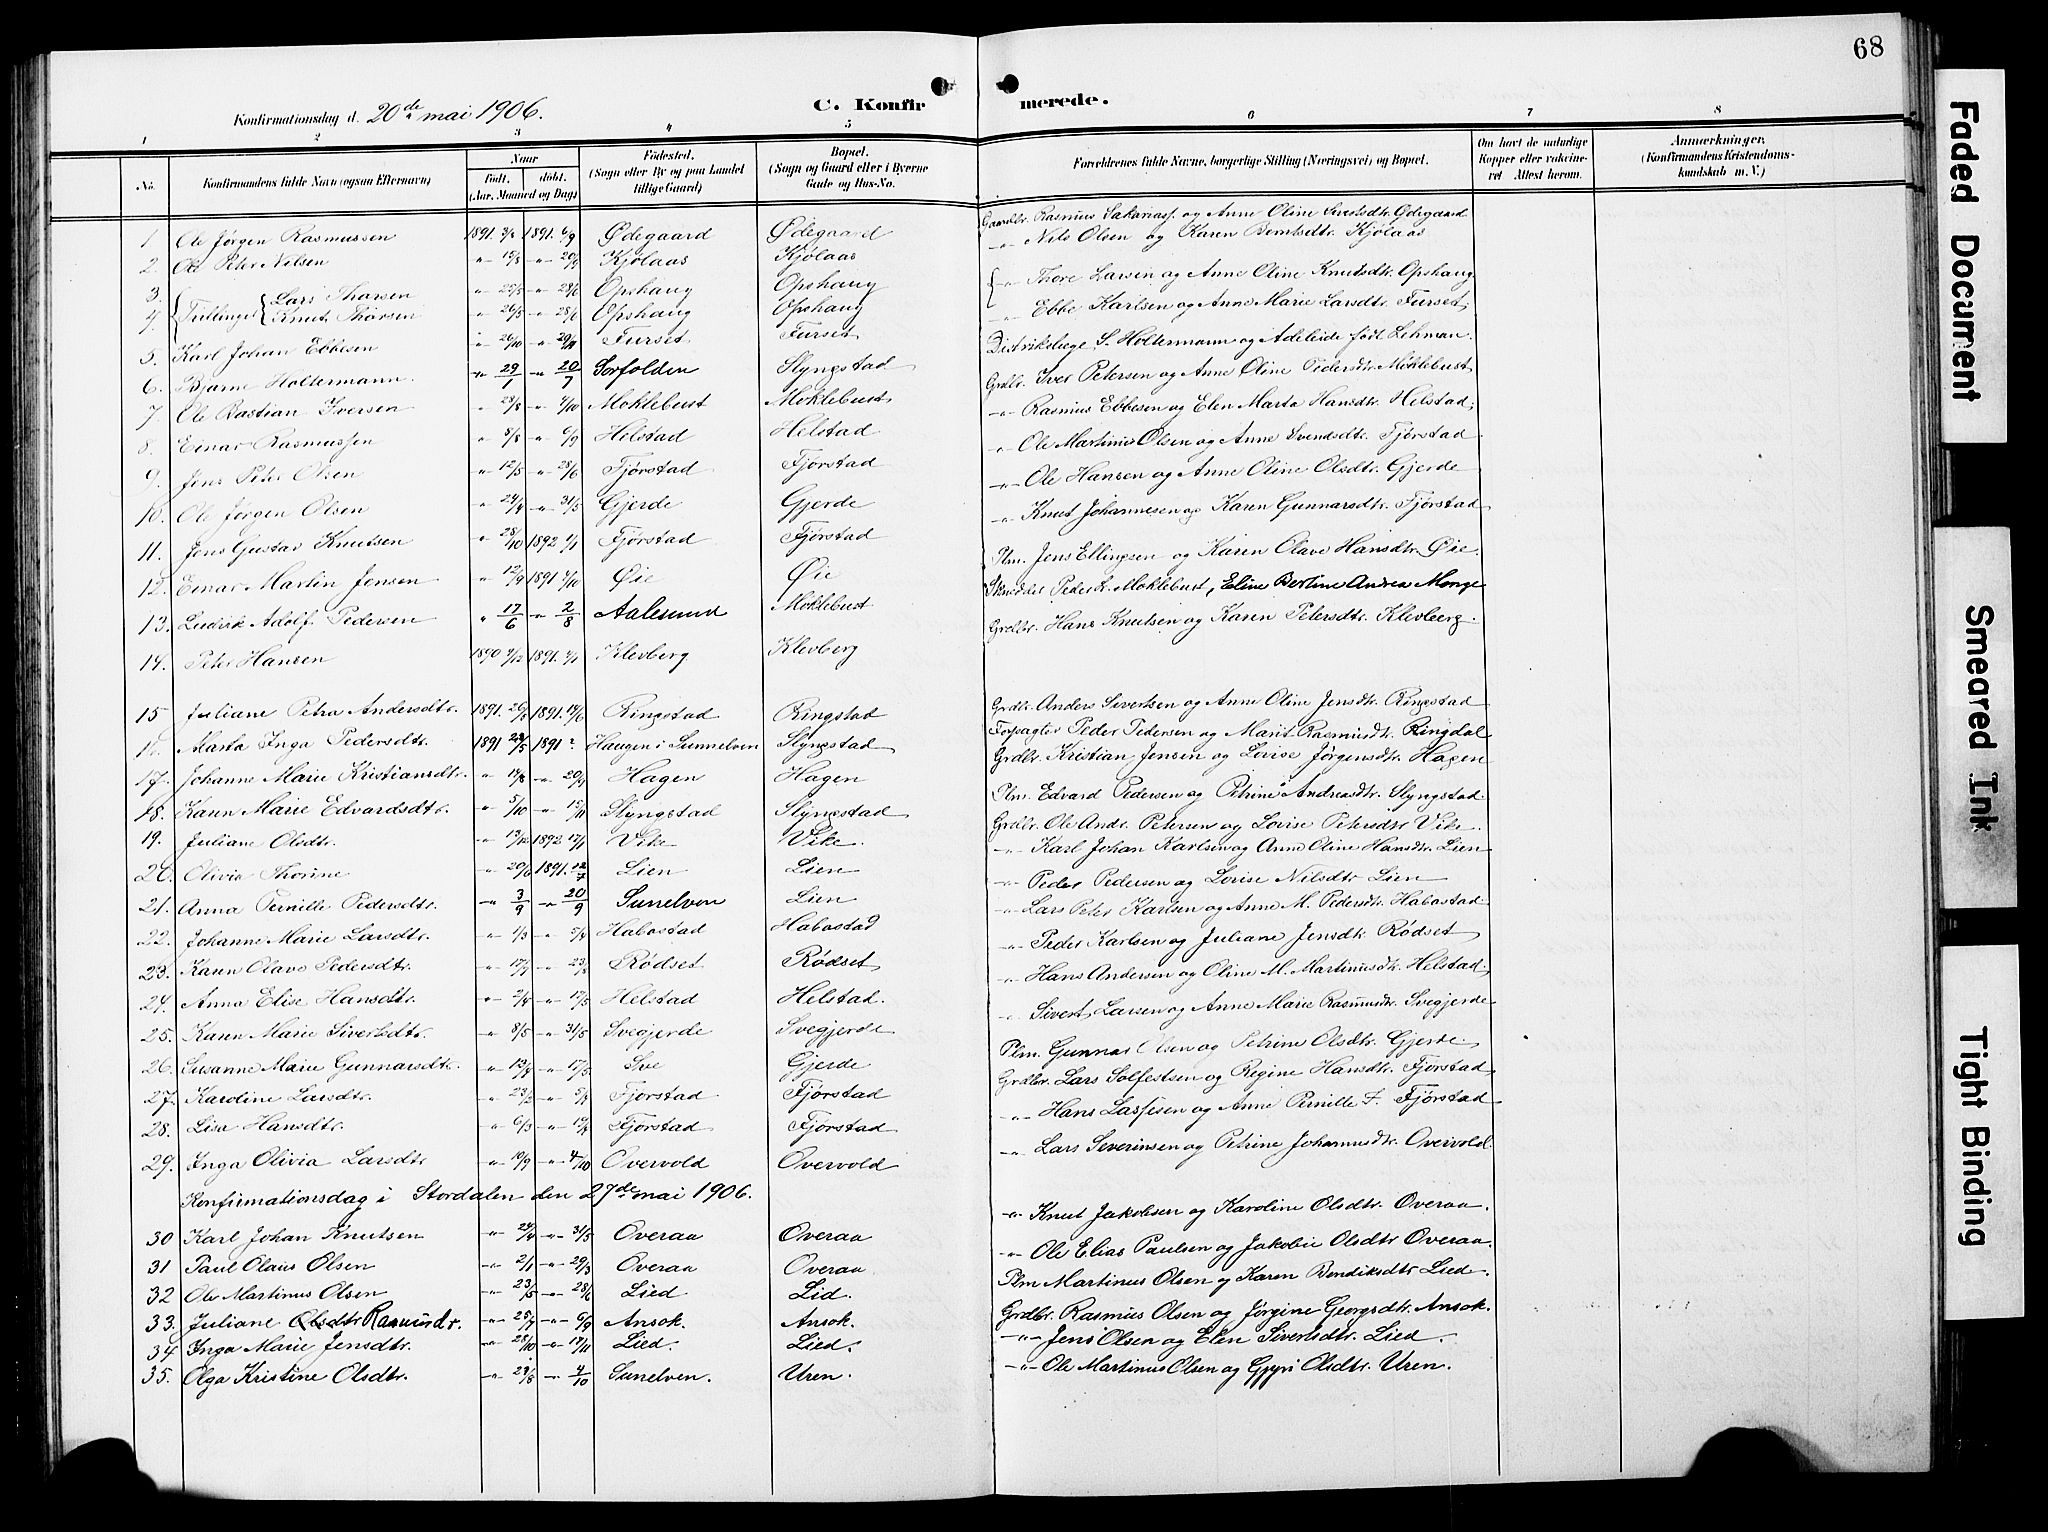 68
Konfirmationsdag d. 20de mai 1906.
C. Konfirmerede.
1 2 3 4 5 6 7 8
No. Konfirmandens fulde Navn (ogsaa Efternavn) Naar Født. døbt. (Aar, Maaned og Dag) Fødested. (Sogn eller By og paa Landet tillige Gaard) Bopæl. (Sogn og Gaard eller i Byerne Gade og Hus-No. Forældrenes fulde Navne, borgerlige Stilling (Næringsvei) og Bopæl. Om havt de naturlige Kopper eller vakcineret Attest herom. Anmærkninger. (Konfirmandens Kristendomskundskab m. V.)
1. Ole Jørgen Rasmussen 1891. 1891. 6/9 Ødegaard Ødegaard Gaardbr. Rasmus Sakariass. og Anne Oline Sivertsdtr. Ødegaard
2. Ole Peter Nilsen " " 20/9 Kjølaas Kjølaas " Nils Olsen og Karen Berntsdtr. Kjølaas
3. Tvillinger Lars Thorsen " 25/5 " 28/6 Opshaug Opshaug " Thore Larsen og Anne Oline Knutsdtr. Opshaug
4. Knut Thorsen " 26/5 " 28/6 Opshaug Opshaug
5. Karl Johan Ebbesen " 26/10 " 29/11 Furset Furset " Ebbe Karlsen og Anne Marie Larsdtr. Furset
6. Bjarne Holtermann. " 29/1 " 20/7 Sørfolden Slyngstad Distriktslæge S. Holtermann og Adeleide født Lehman.
7. Ole Bastian Iversen " 28/8 " 4/10 Moklebust Moklebust Grdbr. Iver Petersen og Anne Oline Pedersdtr. Moklebust
8. Einar Rasmussen " 8/8 " 6/9 Helstad Helstad " Rasmus Ebbesen og Elen Marta Hansdtr. Helstad
9. Jens Peter Olsen " 12/5 " 28/6 Fjørstad Fjørstad " Ole Martinus Olsen og Anne Svendsdtr. Fjørstad
10. Ole Jørgen Olsen " 24/4 " 31/5 Gjerde Gjerde " Ole Hansen og Anne Oline Olsdtr. Gjerde
11. Jens Gustav Knutsen " 28/10 1892 1/1 Fjørstad Fjørstad " Knut Johannesen og Karen Gunnarsdtr. Fjørstad
12. Einar Martin Jensen " 12/9 1891 4/10 Øie Øie Plm. Jens Ellingsen og Karen Olave Hansdtr. Øie.
13. Ludvik Adolf Pedersen " 17/6 " 2/8 Aalesund Moklebust Skrædder Peder L. Moklebust, Eline Bertine Andrea Monge
14. Peter Hansen 1890 1891. 1/1 Klevberg Klevberg Grdbr. Hans Knutsen og Karen Petersdtr. Klevberg.
15 Juliane Petra Andersdtr. 1891. 26/5 1891. 14/6 Ringstad Ringstad Grdbr. Anders Sivertsen og Anne Oline Jensdtr. Ringstad
16. Marta Inga Pedersdtr. 1891 24/5 1891 ? Haugen i Sunnelven Slyngstad Forpagter Peder Pedersen og Marit Rasmusdtr. Ringdal
17. Johanne Marie Kristiansdtr. " 14/8 " 20/9 Hagen Hagen Grdbr. Kristian Jensen og Lovise Jørgensdtr. Hagen
18. Karen Marie Edvardsdtr. " 5/10 " 15/11 Slyngstad Slyngstad Plm. Edvard Pedersen og Petrine Andreasdtr. Slyngstad
19. Juliane Olsdtr. " 13/12 1892 17/1 Vike Vike. Grdbr. Ole Andr. Petersen og Lovise Petersdtr Vike.
20. Olivia Thorine " 20/6 1891. 12/7 Lien Lien " Karl Johan Karlsen og Anne Oline Hansdtr. Lien
21. Anna Pernille Pedersdtr. " 3/9 " 20/9 Sunelven Lien " Peder Pedersen og Lovise Nilsdtr Lien
22. Johanne Marie Larsdtr. " 1/3 " 5/4 Habostad Habostad " Lars Peter Karlsen og Anne M. Pedersdtr. Habostad
23. Karen Olave Pedersdtr. " 17/7 " 23/8 Rødset Rødset " Peder Karlsen og Juliane Jensdtr. Rødset
24. Anna Elise Hansdtr. " 2/4 " 17/5 Helstad Helstad. " Hans Andersen og Oline M. Martinusdtr. Helstad
25. Karen Marie Sivertsdtr. " 8/5 " 31/5 Svegjerde Svegjerde " Sivert Larsen og Anne Marie Rasmusdtr. Svegjerde
26. Susanne Marie Gunnarsdtr. " 13/4 " 17/5 Sve Gjerde Plm. Gunnar Olsen og Petrine Olsdtr. Gjerde.
27. Karoline Larsdtr. " 23/2 " 5/4 Fjørstad Fjørstad Grdbr. Lars Solfestsen og Regine Hansdtr. Fjørstad
28. Lisa Hansdtr. " 6/3 " 19/4 Fjørstad Fjørstad " Hans Lassesen og Anne Pernille F. Fjørstad
29. Inga Olivia Larsdtr " 10/9 " 4/10 Overvold Overvold " Lars Severinsen og Petrine Johannesdtr. Overvold
Konfirmationsdag i Stordalen den 27de mai 1906.
30 Karl Johan Knutsen " 24/4 " 31/5 Overaa Overaa " Knut Jakobsen og Karoline Olsdtr. Overaa.
31 Paul Olaus Olsen " 2/1 " 29/3 Overaa Overaa. " Ole Elias Paulsen og Jakobie Olsdtr Overaa.
32 Ole Martinus Olsen " 23/5 " 28/6 Lied Lid. Plm Martinus Olsen og Karen Bendiksdtr Lied.
33. Juliane Olsdtr Rasmusdr. " 25/7 " 6/9 Ansok. Ansok. Grdbr. Rasmus Olsen og Jørgine Georgsdtr. Ansok.
34 Inga Marie Jensdtr. " 28/10 " 17/11 Lied. Lied. " Jens Olsen og Elen Sivertsdtr. Lied.
35. Olga Kristine Olsdtr. " 29/8 " 4/10 Sunelven. Uren. " Ole Martinus Olsen og Gjyri Olsdtr. Uren.
Faded Document
Smeared Ink
Tight Binding